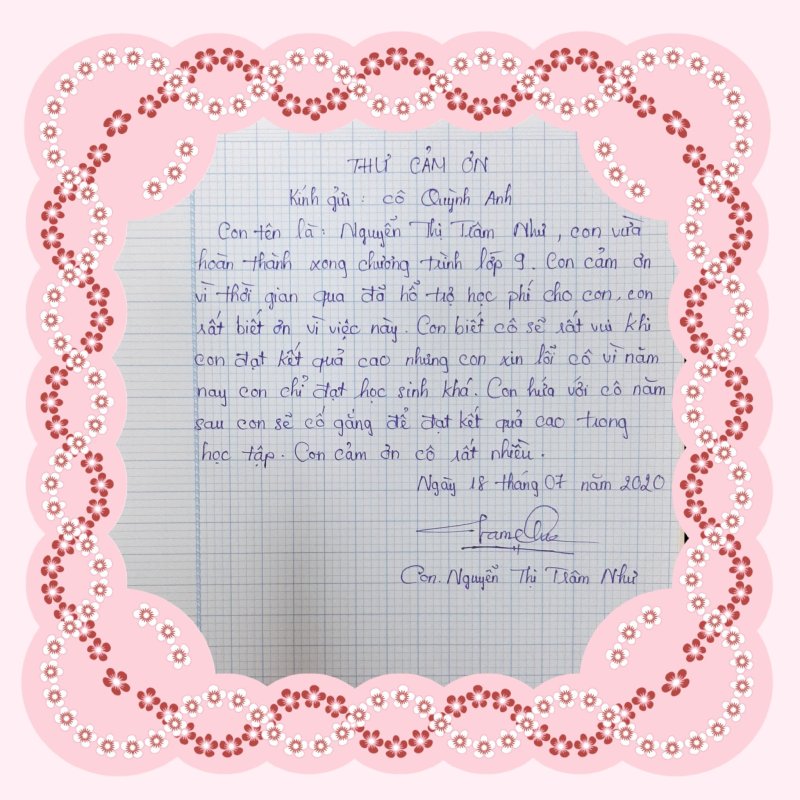 THƯ CẢM ƠN
Kính gửi : cô Quỳnh Anh
Con tên là : Nguyễn Thị Trâm Như , con vừa
hoàn thành xong chương trình lớp 9. Con cảm ơn
vì thời gian qua đã hổ trợ học phí cho con, con
rất biết ơn vì việc này. Con biết cô sẽ rất vui khi
con đạt kết quả cao nhưng con xin lỗi cô vì năm
nay con chỉ đạt học sinh khá. Con hứa với cô năm
sau con sẽ cố gắng để đạt kết quả cao trong
học tập. Con cảm ơn cô rất nhiều.
Ngày 18 tháng 07 năm 2020
Con. Nguyễn Thị Trâm Như